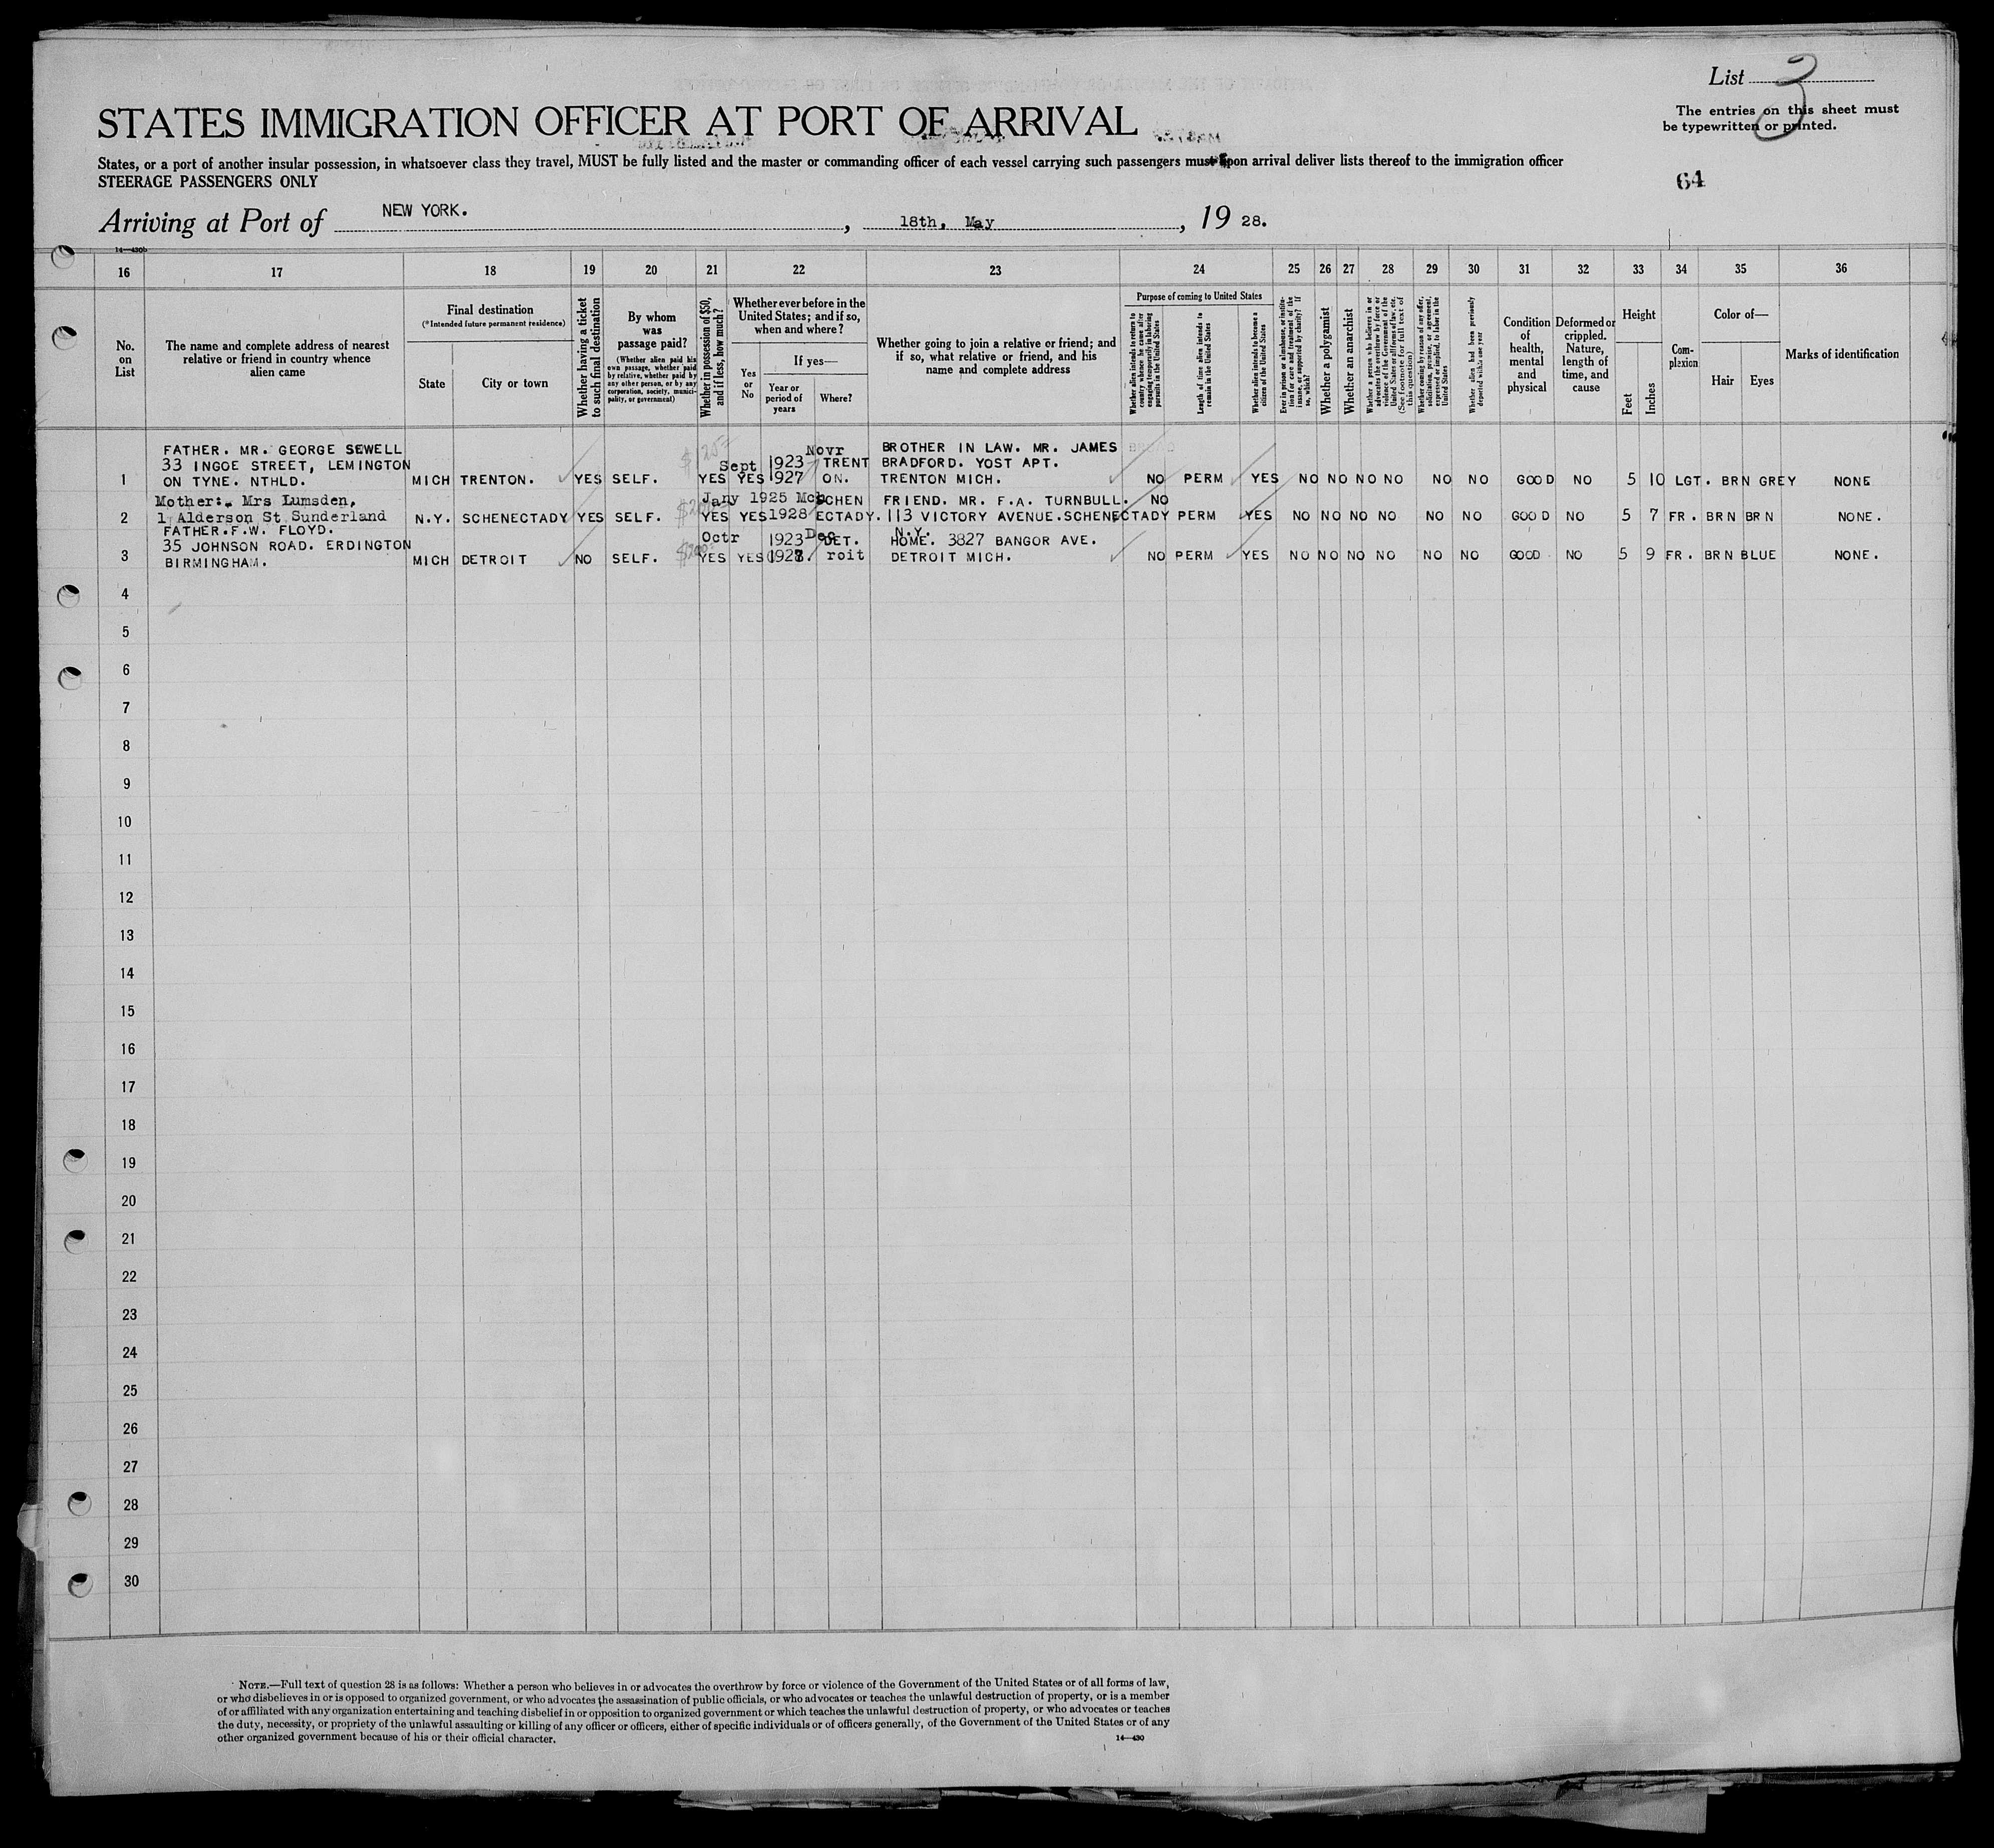 List 3
The entries on this sheet must
be typewritten or printed.
STATES IMMIGRATION OFFICER AT PORT OF ARRIVAL
States, or a port of another insular possession, in whatsoever class they travel, MUST be fully listed and the master or commanding officer of each vessel carrying such passengers must upon arrival deliver lists thereof to the immigration officer
STEERAGE PASSENGERS ONLY
64
Arriving at Port of NEW YORK. , 18th, May , 19 28.
14—430b
16 17 18 19 20 21 22 23 24 25 26 27 28 29 30 31 32 33 34 35 36
No. on List
The name and complete address of nearest relative or friend in country whence alien came
Final destination
(*Intended future permanent residence)
State
City or town
Whether having a ticket to such final destination
By whom was passage paid?
(Whether alien paid his own passage, whether paid by relative, whether paid by any other person, or by any corporation, society, municipality, or government)
Whether in possession of $50, and if less, how much?
Whether ever before in the United States; and if so, when and where?
Yes or No
If yes—
Year or period of years
Where?
Whether going to join a relative or friend; and if so, what relative or friend, and his name and complete address
Purpose of coming to United States
Whether alien intends to return to country whence he came after engaging temporarily in laboring pursuits in the United States
Length of time alien intends to remain in the United States
Whether alien intends to become a citizen of the United States
Ever in prison or almshouse, or institution for care and treatment of the insane, or supported by charity? If so, which?
Whether a polygamist
Whether an anarchist
Whether a person who believes in or advocates the overthrow by force or violence of the Government of the United States or all forms of law, etc. (See footnote for full text of this question)
Whether coming by reason of any offer, solicitation, promise, or agreement, expressed or implied, to labor in the United States
Whether alien had been previously deported within one year
Condition of health, mental and physical
Deformed or crippled. Nature, length of time, and cause
Height
Feet
Inches
Complexion
Color of—
Hair
Eyes
Marks of identification
1 FATHER. MR. GEORGE SEWELL
33 INGOE STREET, LEMINGTON
ON TYNE. NTHLD. MICH TRENTON. YES SELF. YES YES Sept 1923 Novr 1927 TRENTON. BROTHER IN LAW. MR. JAMES
BRADFORD. YOST APT.
TRENTON MICH. NO PERM YES NO NO NO NO NO NO GOOD NO 5 10 LGT. BRN GREY NONE
2 Mother:. Mrs Lumsden,
1 Alderson St Sunderland N.Y. SCHENECTADY YES SELF. YES YES Jany 1925 Mch 1928 SCHENECTADY. FRIEND. MR. F.A. TURNBULL.
113 VICTORY AVENUE. SCHENECTADY N.Y. NO PERM YES NO NO NO NO NO NO GOOD NO 5 7 FR. BRN BRN NONE.
3 FATHER. F.W. FLOYD.
35 JOHNSON ROAD. ERDINGTON
BIRMINGHAM. MICH DETROIT NO SELF. YES YES Octr 1923 Dec 1927. DET.roit HOME. 3827 BANGOR AVE.
DETROIT MICH. NO PERM YES NO NO NO NO NO NO GOOD NO 5 9 FR. BRN BLUE NONE.
4
5
6
7
8
9
10
11
12
13
14
15
16
17
18
19
20
21
22
23
24
25
26
27
28
29
30
NOTE.—Full text of question 28 is as follows: Whether a person who believes in or advocates the overthrow by force or violence of the Government of the United States or of all forms of law,
or who disbelieves in or is opposed to organized government, or who advocates the assassination of public officials, or who advocates or teaches the unlawful destruction of property, or is a member
of or affiliated with any organization entertaining and teaching disbelief in or opposition to organized government or which teaches the unlawful destruction of property, or who advocates or teaches
the duty, necessity, or propriety of the unlawful assaulting or killing of any officer or officers, either of specific individuals or of officers generally, of the Government of the United States or of any
other organized government because of his or their official character.
14—430